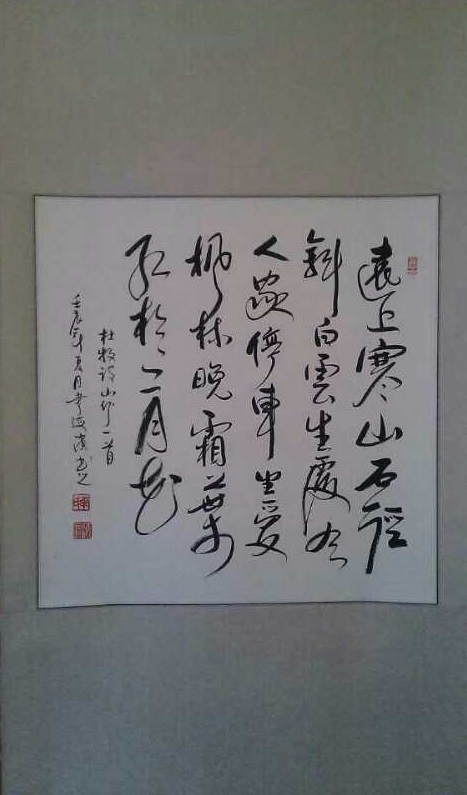 遠上寒山石徑
斜白雲生處有
人家停車坐愛
楓林晚霜葉
紅於二月花
杜牧詩山行一首
壬辰年夏月書之